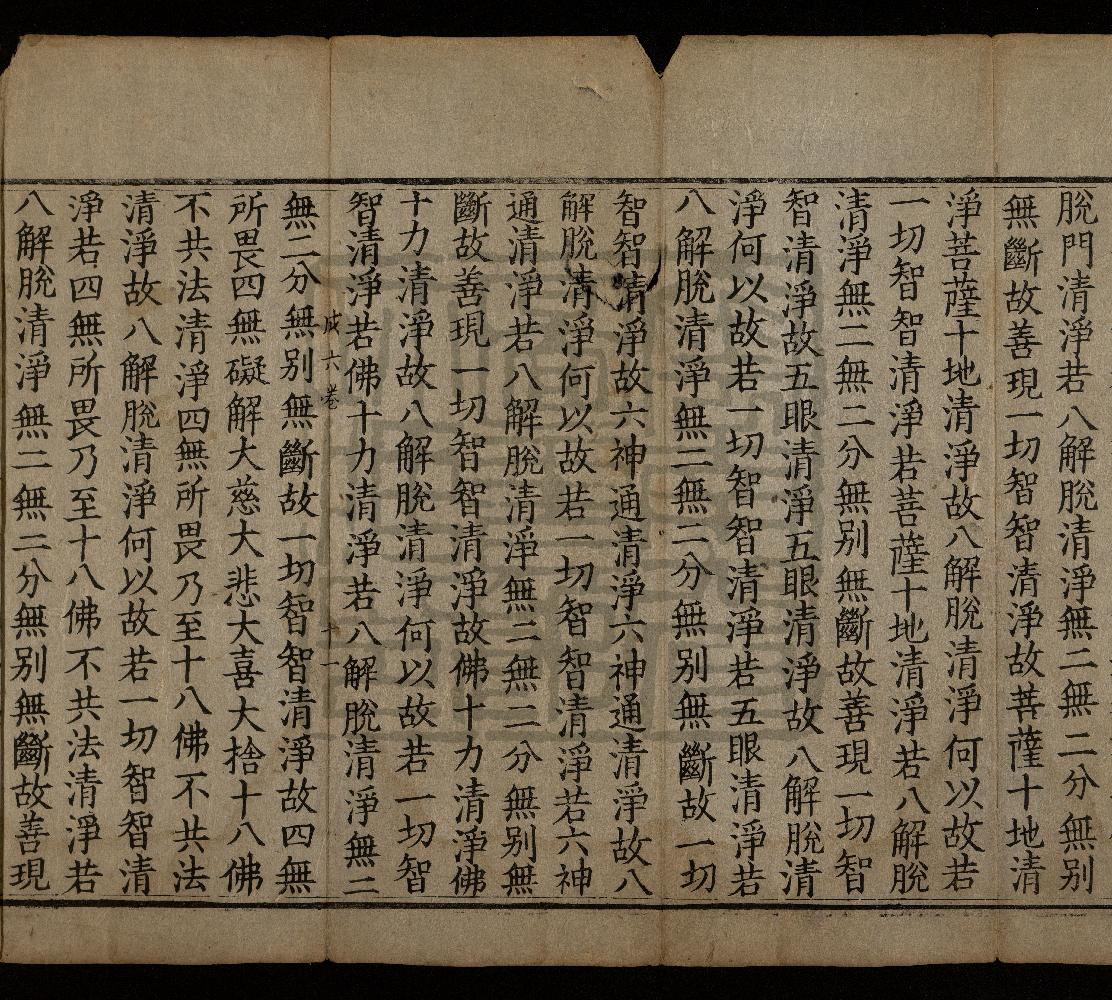 脫門清淨若八解脫清淨無二無二分無别
無斷故善現一切智智清淨故菩薩十地清
淨菩薩十地清淨故八解脫清淨何以故若
一切智智清淨若菩薩十地清淨若八解脫
清淨無二無二分無别無斷故善現一切智
智清淨故五眼清淨五眼清淨故八解脫清
淨何以故若一切智智清淨若五眼清淨若
八解脫清淨無二無二分無别無斷故一切
智智清淨故六神通清淨六神通清淨故八
解脫清淨何以故若一切智智清淨若六神
通清淨若八解脫清淨無二無二分無别無
斷故善現一切智智清淨故佛十力清淨佛
十力清淨故八解脫清淨何以故若一切智
智清淨若佛十力清淨若八解脫清淨無二
六卷 十一
無二分無别無斷故一切智智清淨故四無
所畏四無礙解大慈大悲大喜大捨十八佛
不共法清淨四無所畏乃至十八佛不共法
清淨故八解脫清淨何以故若一切智智清
淨若四無所畏乃至十八佛不共法清淨若
八解脫清淨無二無二分無别無斷故善現